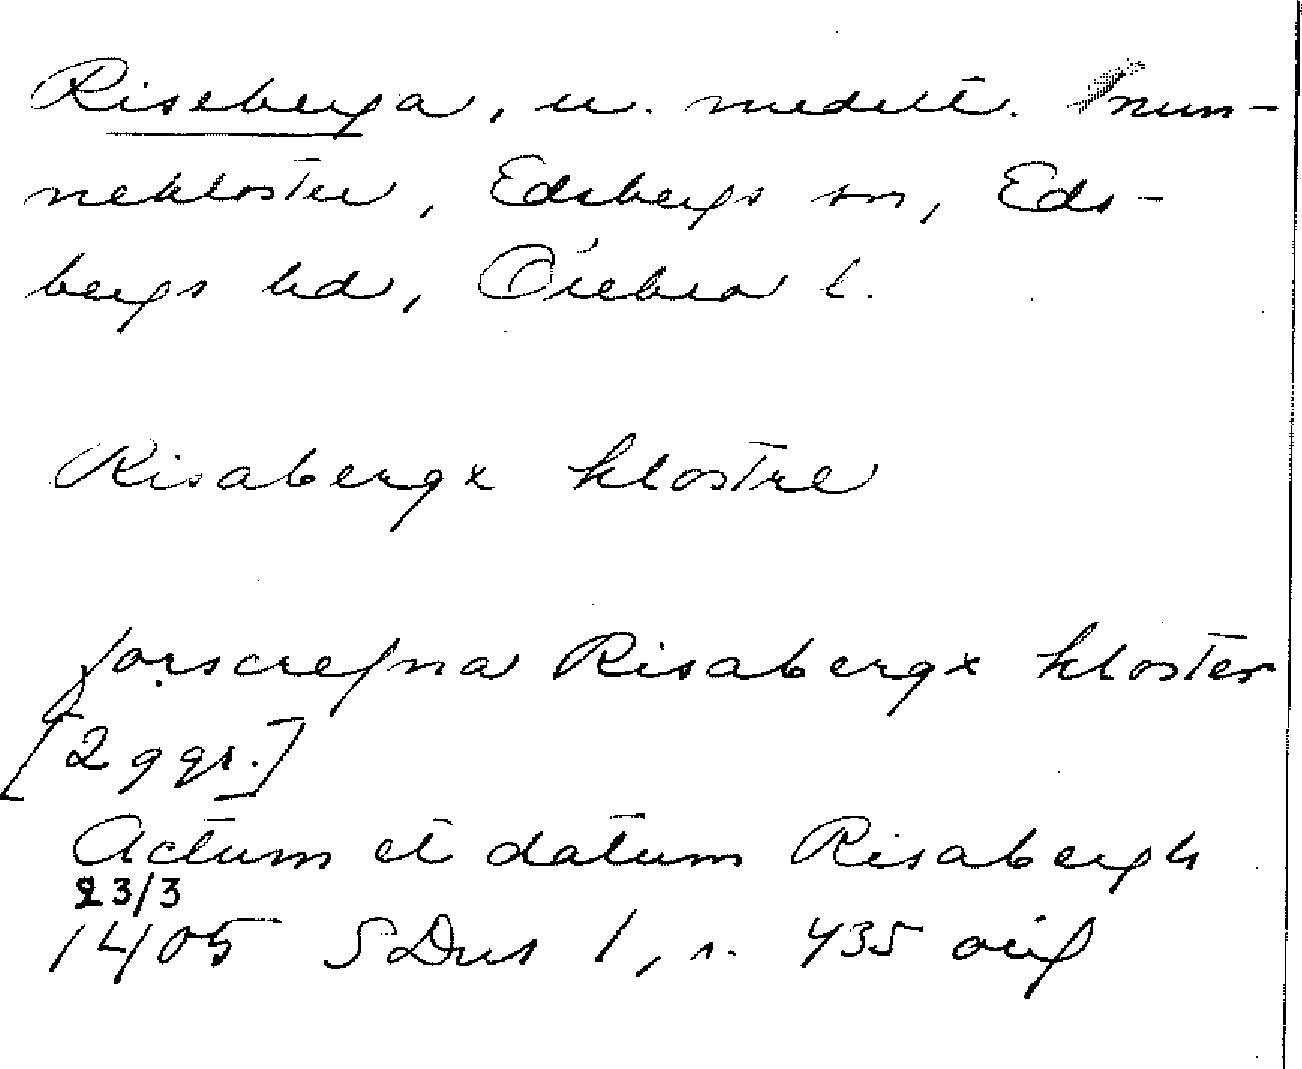 Riseberga, u. medelt. nun-
nekloster, Edsbergs sn, Eds-
bergs hd, Örebro l.
Risabergx klostre
forscrefna Risabergx kloster
[2 ggr.]
Actum et datum Risabergh
23/3
1405 SDns 1, s. 435 orig